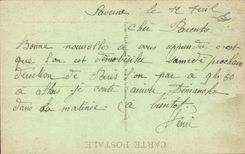 le 12 Avril
Chers Parents
Bonne nouvelle à vous apprendre c'est
que l'on est démobilisé samedi prochain
direction de Paris l'on part à 9h30
alors je compte arrivé Dimanche
dans la matinée à bientôt
CARTE POSTALE